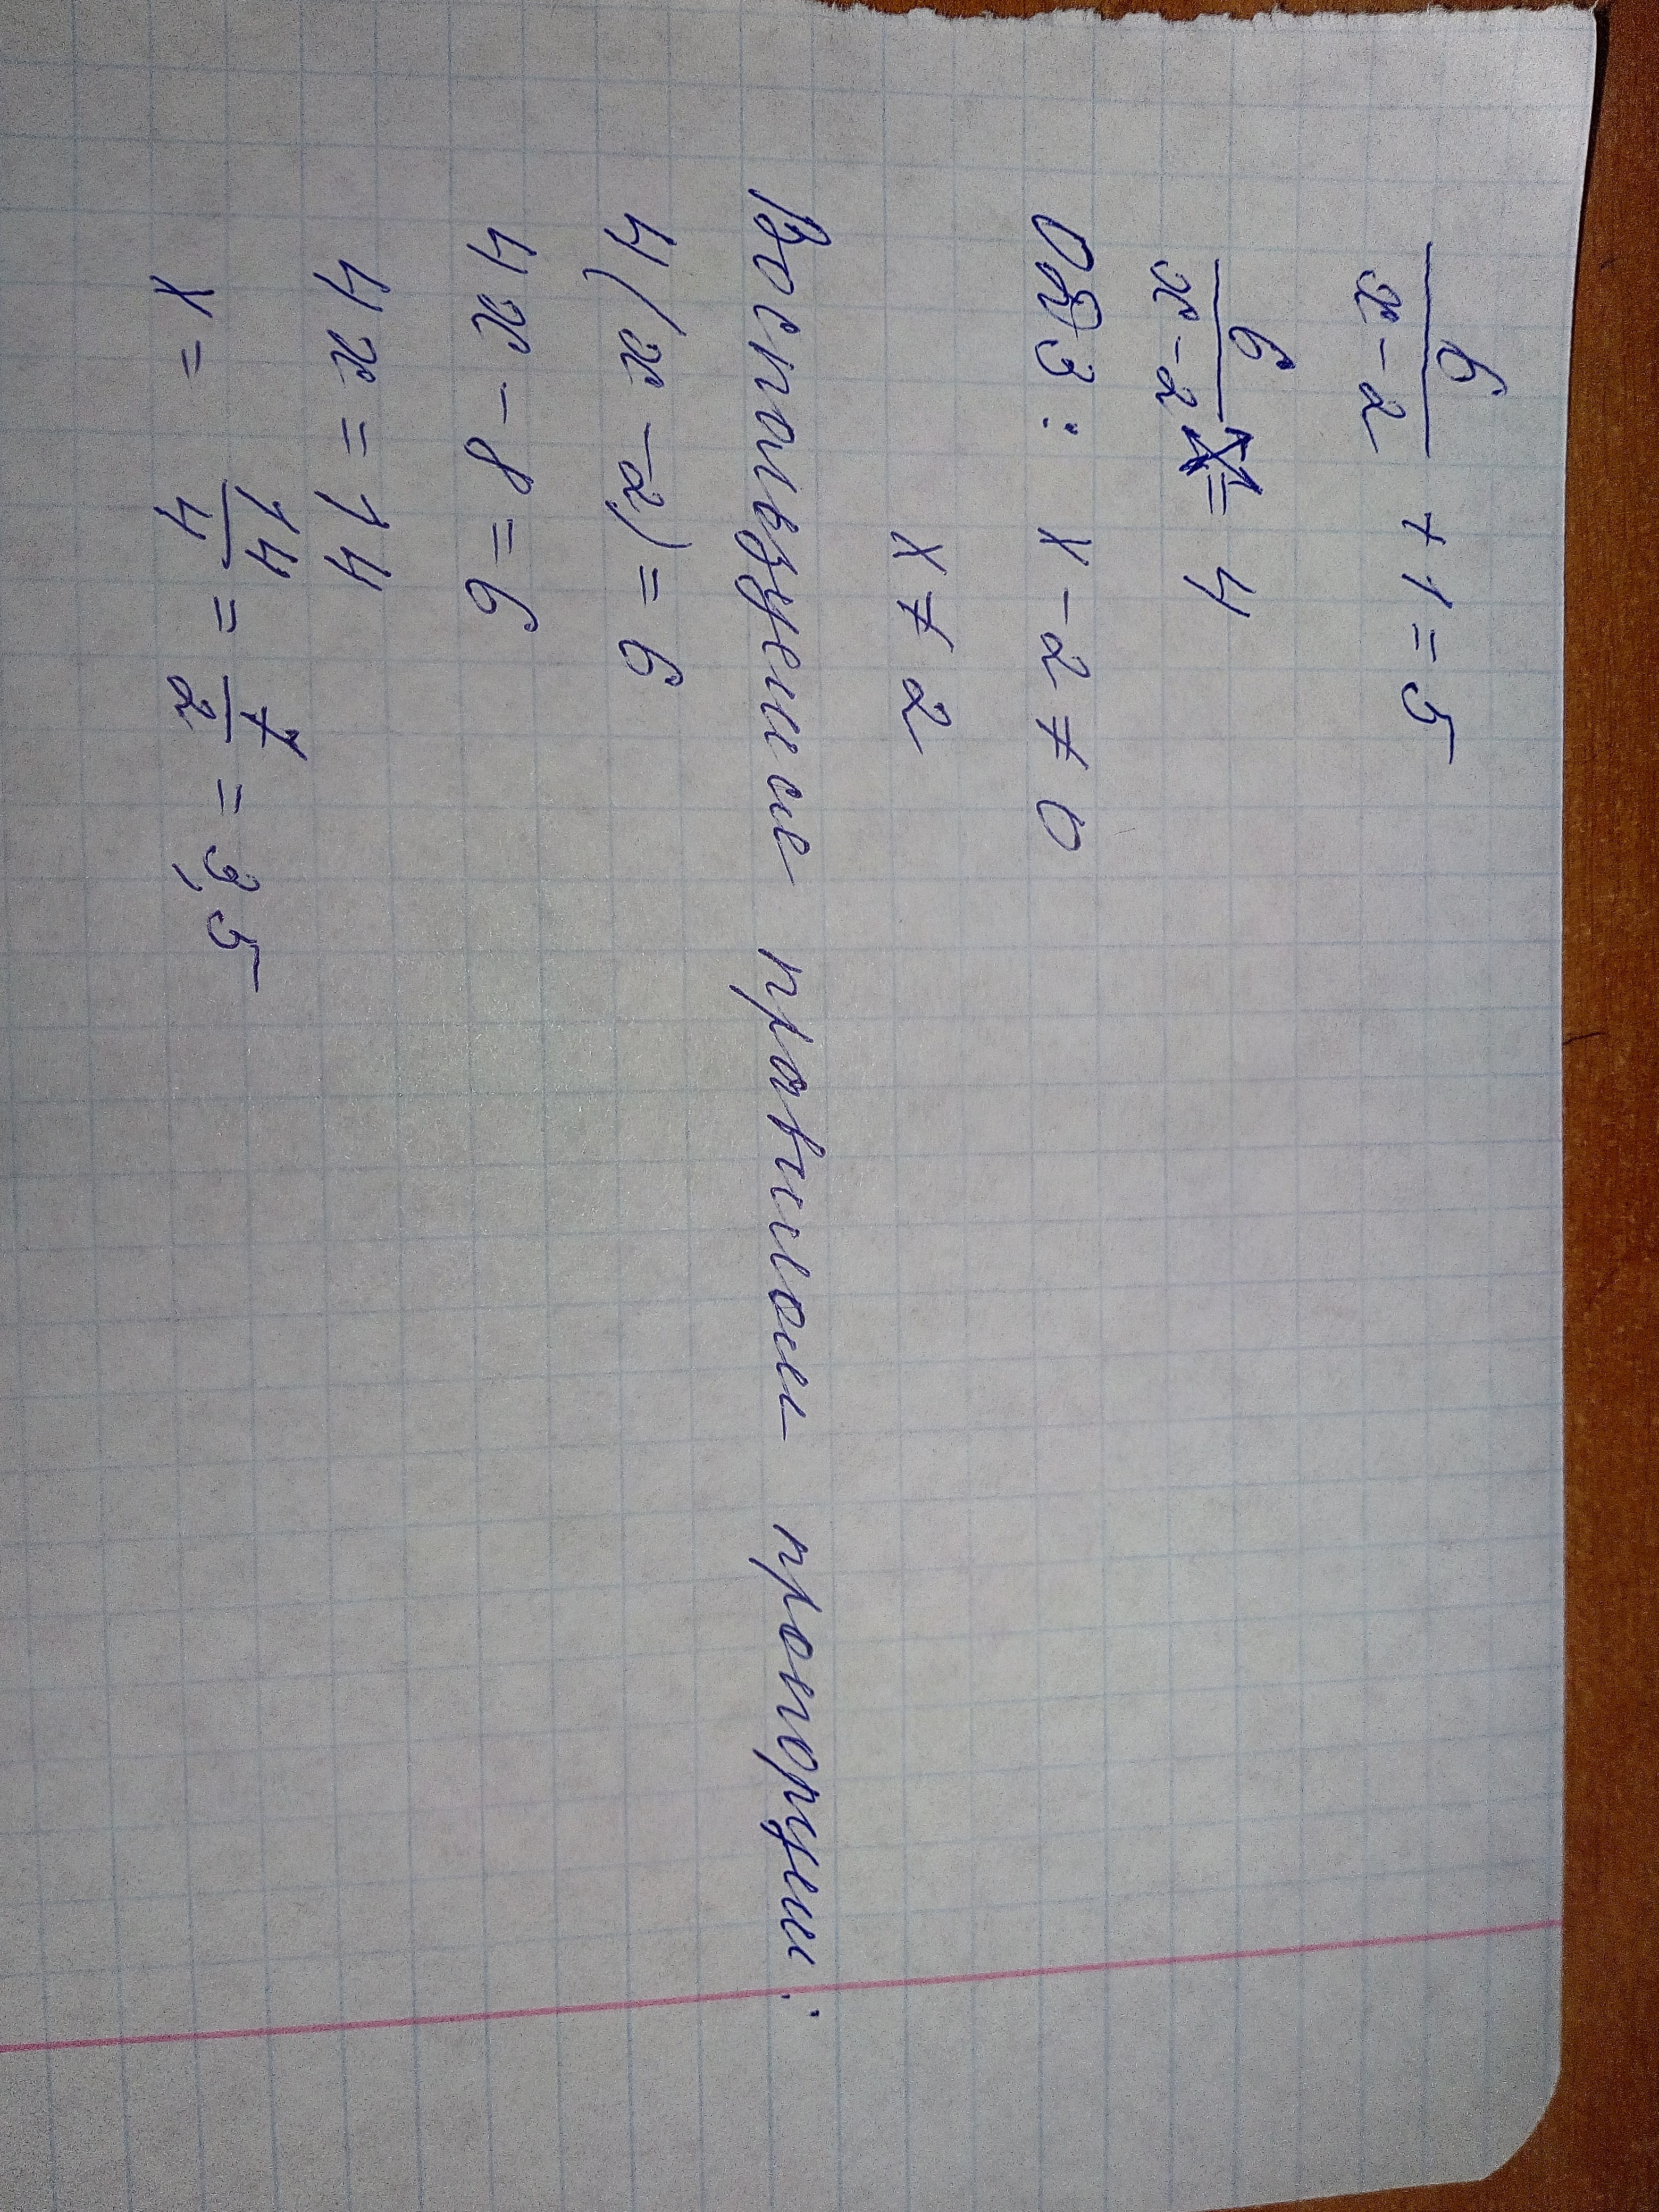 6/(x-2) + 1 = 5
6/(x-2) = 4
ОДЗ: x - 2 ≠ 0
x ≠ 2
Воспользуемся правилом пропорции:
4(x - 2) = 6
4x - 8 = 6
4x = 14
x = 14/4 = 7/2 = 3,5